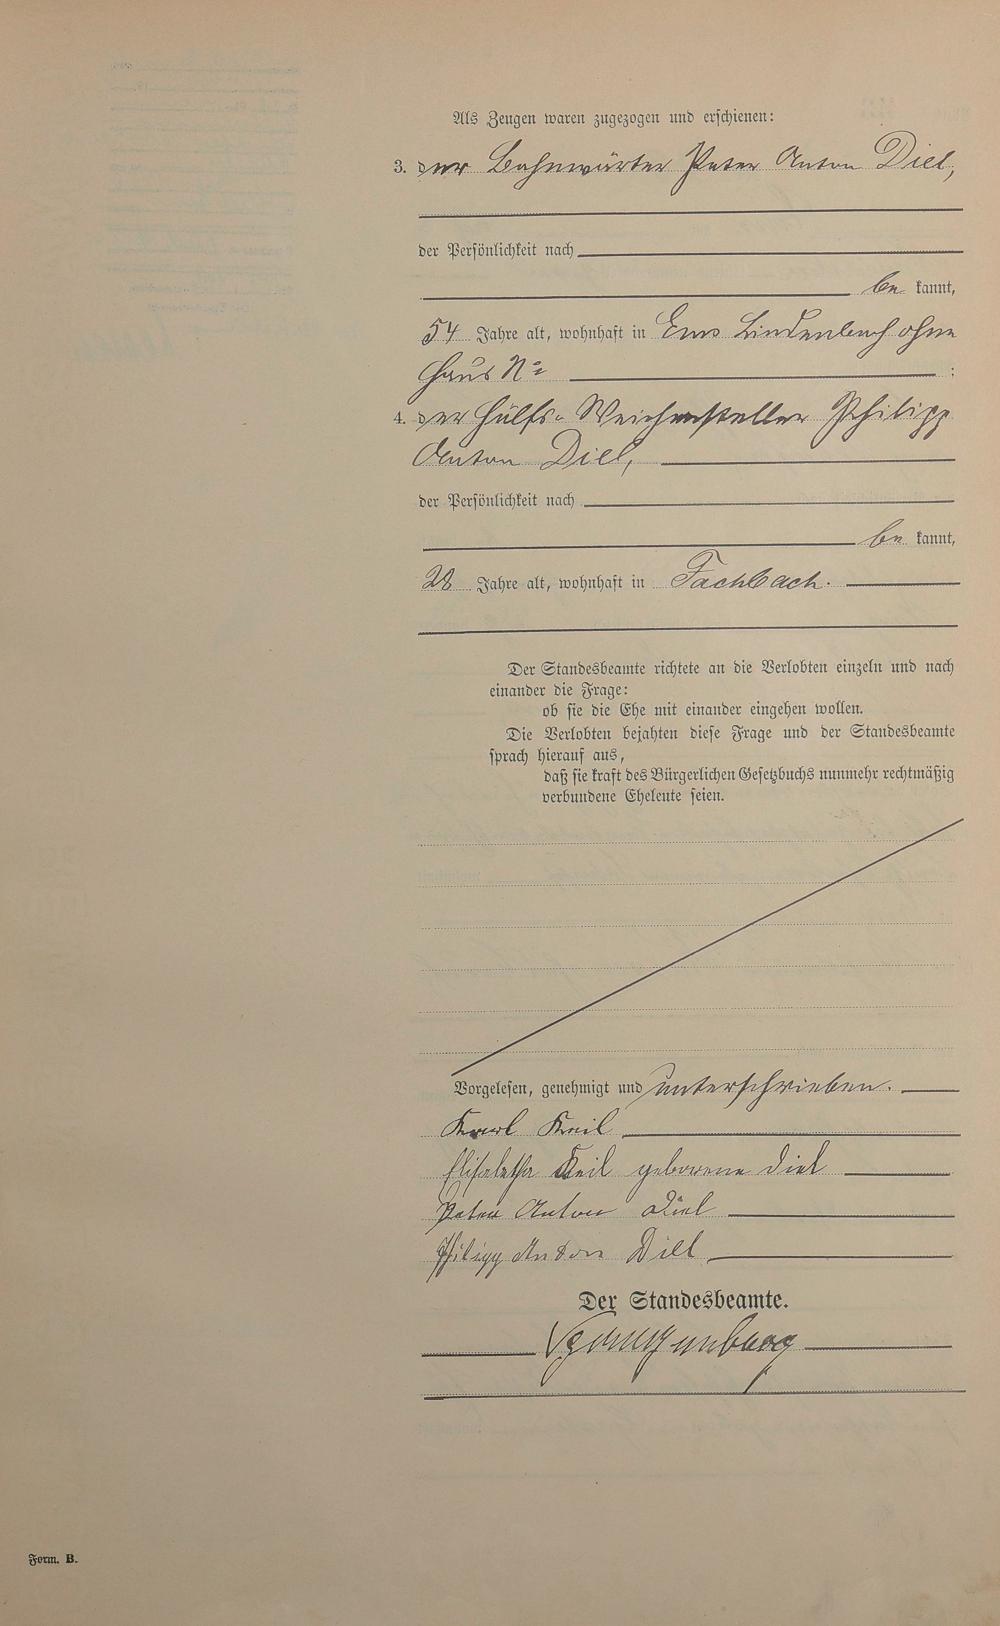 Als Zeugen waren zugezogen und erschienen:
3. der Bahnwärter Peter Anton Diel,
der Persönlichkeit nach
be kannt,
54 Jahre alt, wohnhaft in Ems Lindenbach ohne
Haus No :
4. der Hülfs-Weichensteller Philipp
Anton Diel,
der Persönlichkeit nach
be kannt,
28 Jahre alt, wohnhaft in Fachbach.
Der Standesbeamte richtete an die Verlobten einzeln und nach
einander die Frage:
ob sie die Ehe mit einander eingehen wollen.
Die Verlobten bejahten diese Frage und der Standesbeamte
sprach hierauf aus,
daß sie kraft des Bürgerlichen Gesetzbuchs nunmehr rechtmäßig
verbundene Eheleute seien.
Vorgelesen, genehmigt und unterschrieben.
Karl Keil
Elisabetha Keil geborene Diel
Peter Anton Diel
Philipp Anton Diel
Der Standesbeamte.
Form. B.